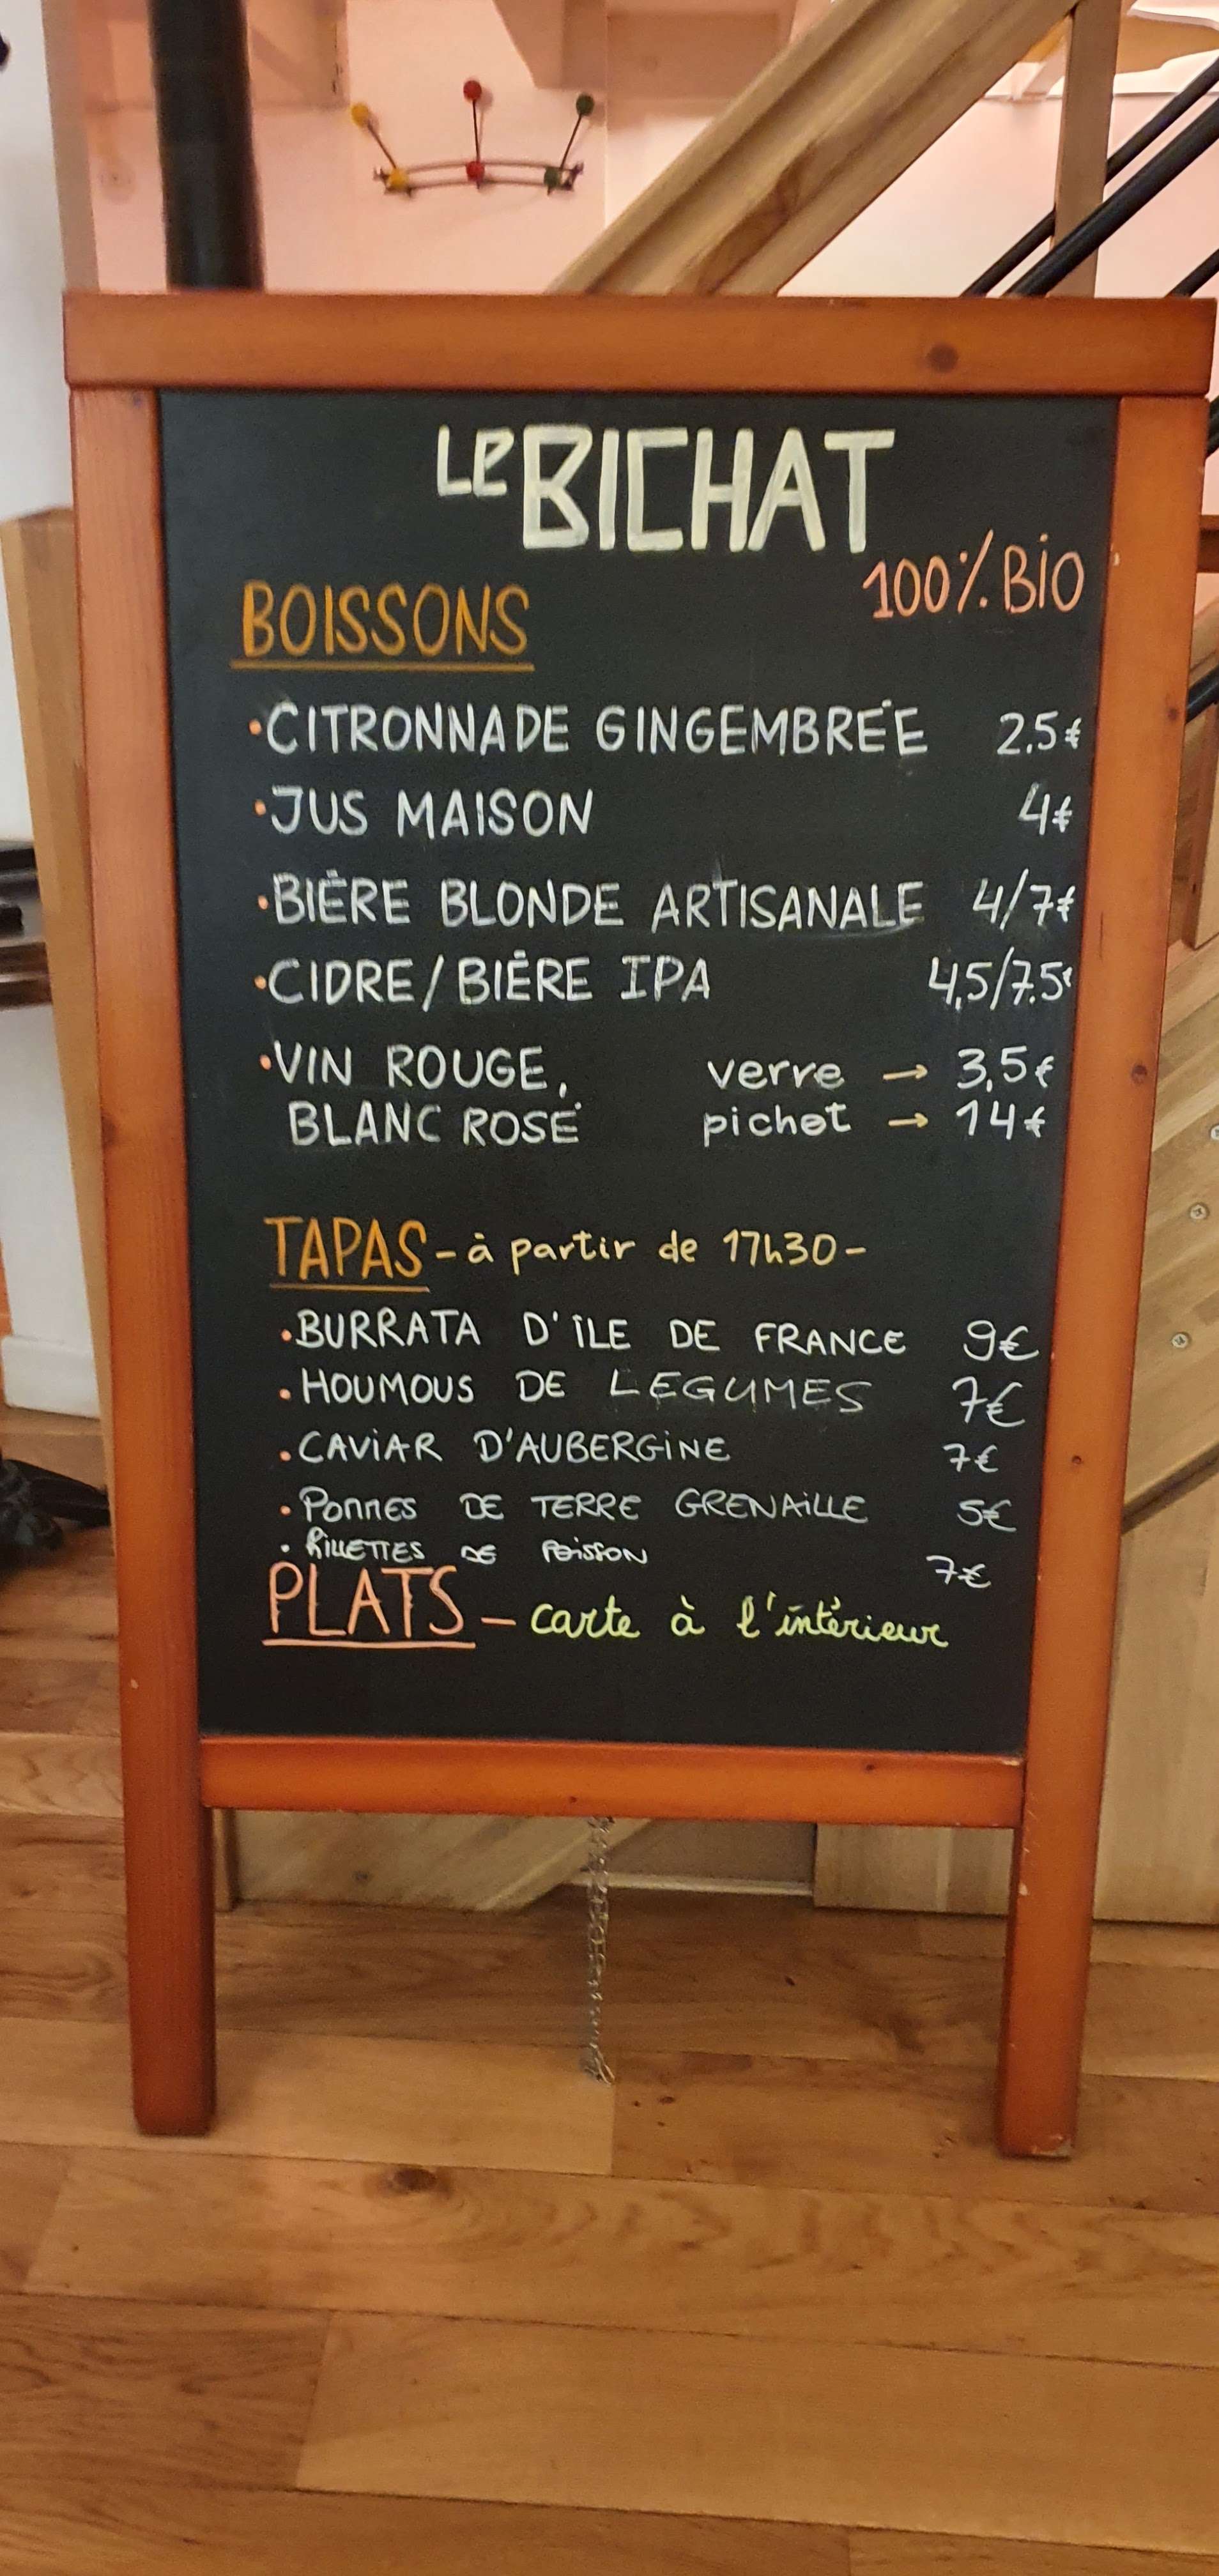 LE BICHAT
100% BIO
BOISSONS
• CITRONNADE GINGEMBRÉE 2,5€
• JUS MAISON 4€
• BIÈRE BLONDE ARTISANALE 4/7€
• CIDRE/BIÈRE IPA 4,5/7.5€
• VIN ROUGE, verre → 3,5€
BLANC ROSÉ pichet → 14€
TAPAS - à partir de 17h30 -
• BURRATA D'ÎLE DE FRANCE 9€
• HOUMOUS DE LEGUMES 7€
• CAVIAR D'AUBERGINE 7€
• POMMES DE TERRE GRENAILLE 5€
• RILLETTES DE POISSON 7€
PLATS - carte à l'intérieur